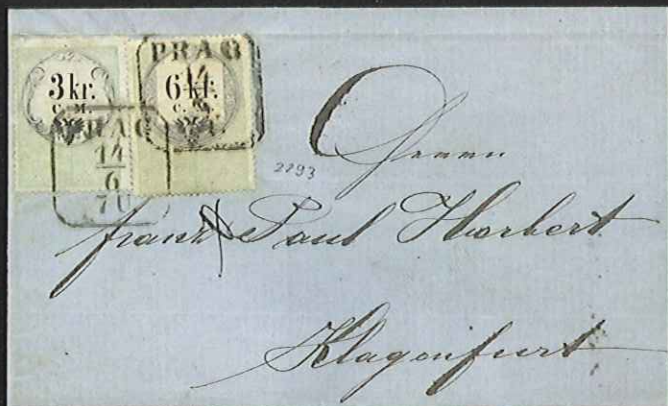 3 kr.
C. M.
6 kr.
C. M.
PRAG
14
6
PRAG
14
6
70
2793
Herrn
Franz Paul Herbert
Klagenfurt